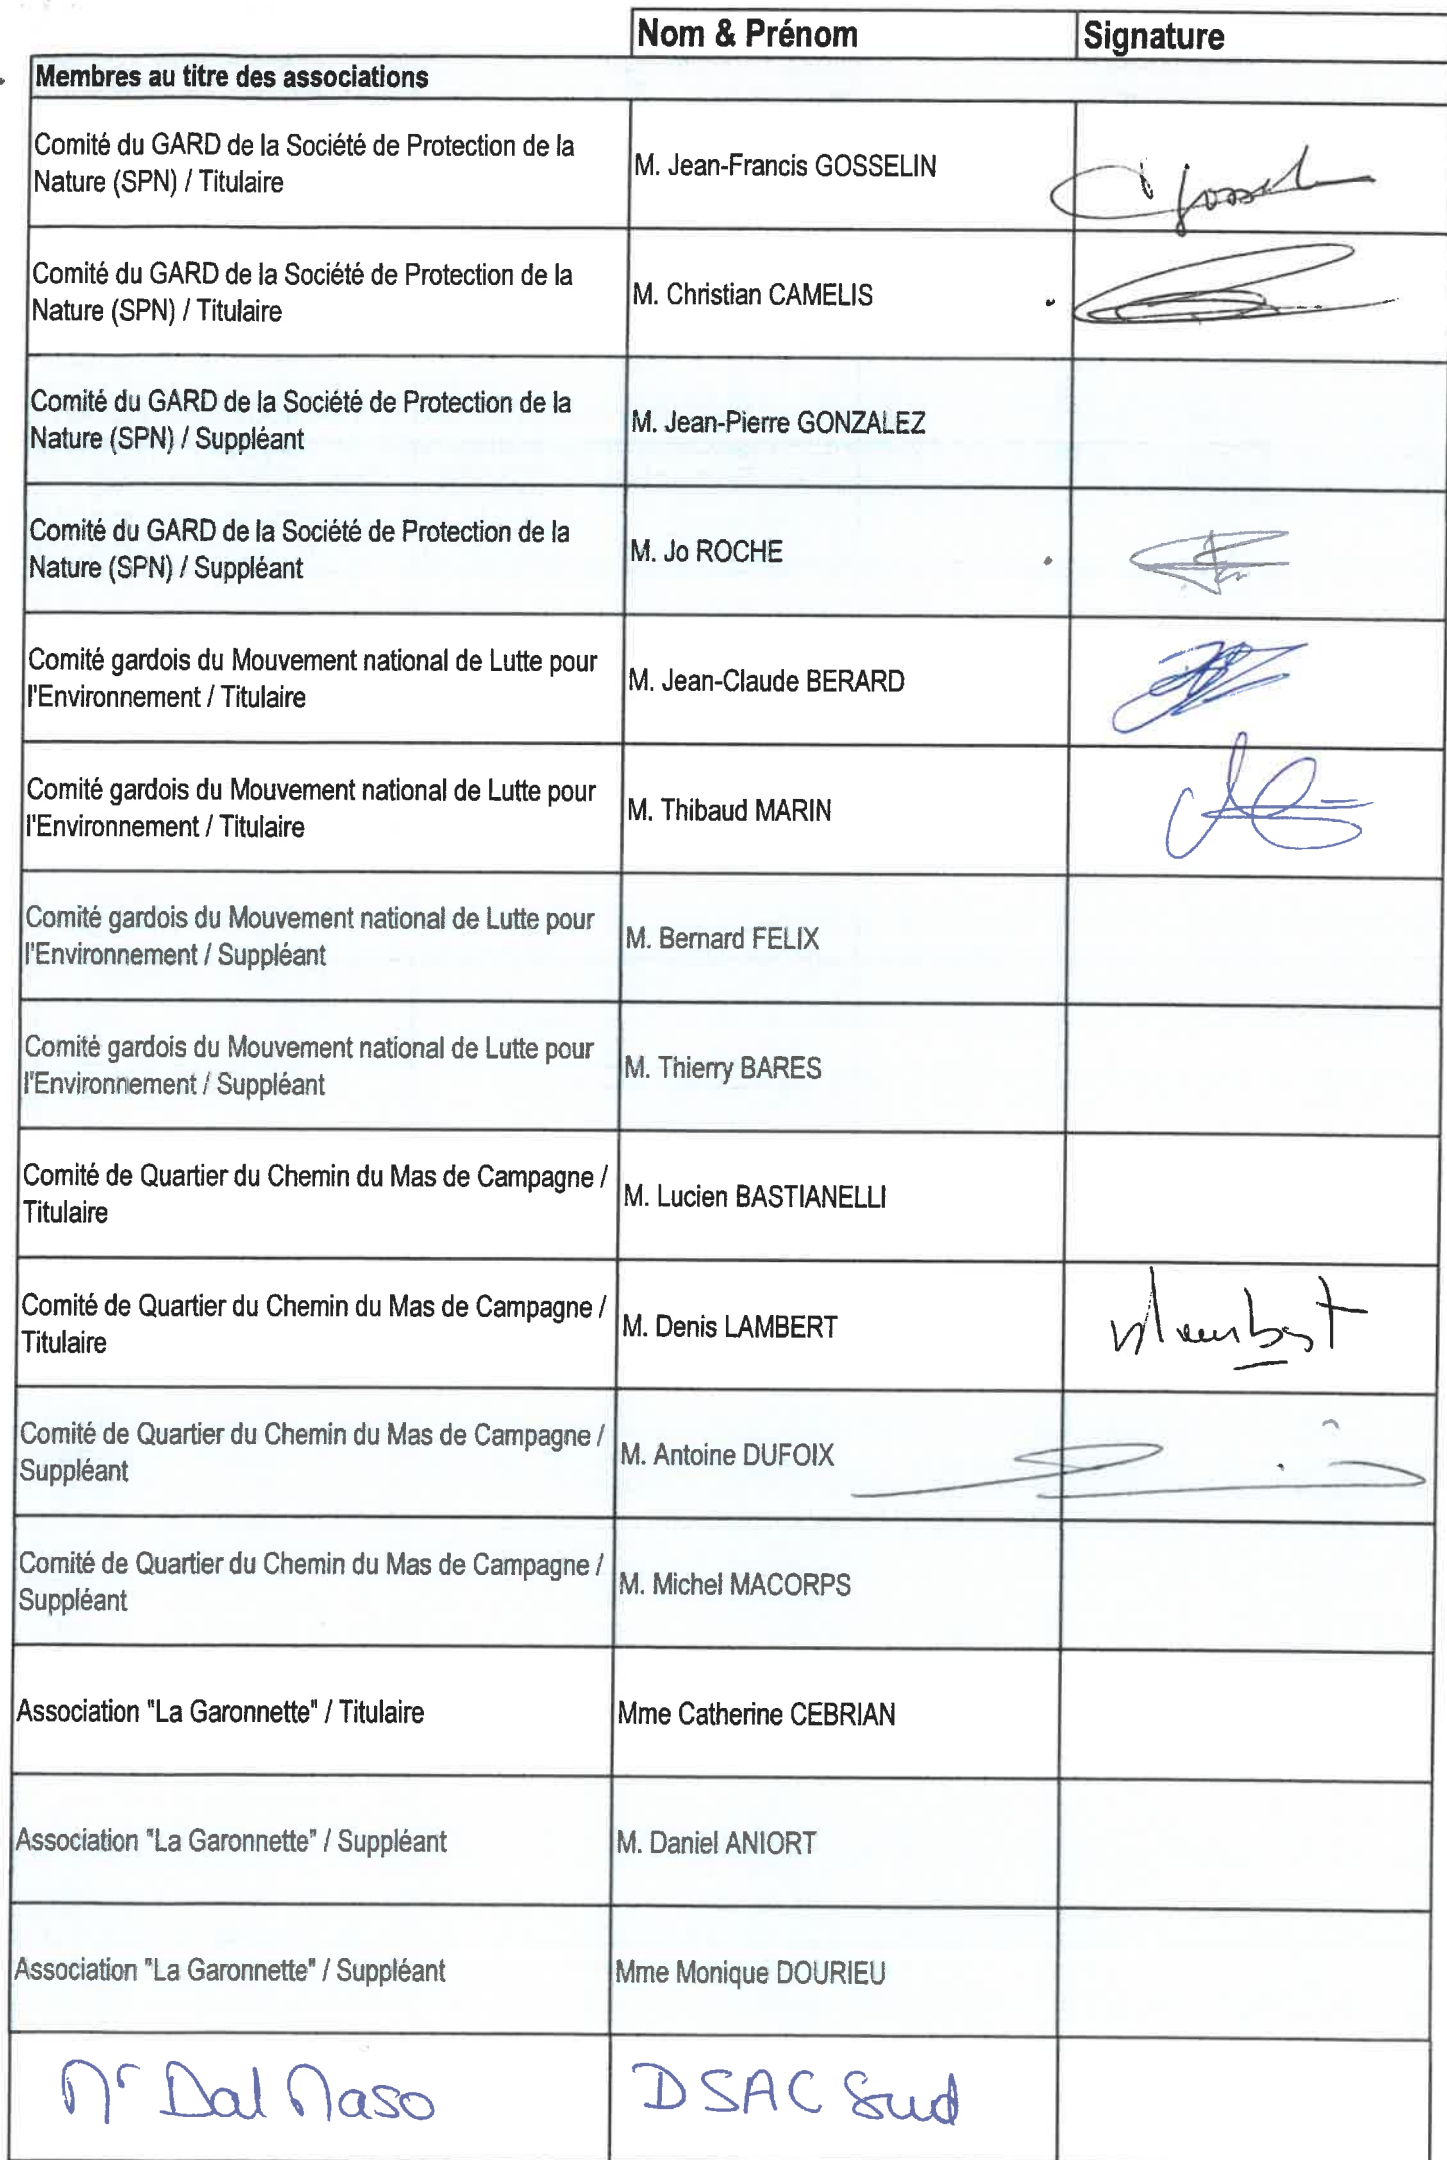 Nom & Prénom Signature
Membres au titre des associations
Comité du GARD de la Société de Protection de la
Nature (SPN) / Titulaire
M. Jean-Francis GOSSELIN
Comité du GARD de la Société de Protection de la
Nature (SPN) / Titulaire
M. Christian CAMELIS
Comité du GARD de la Société de Protection de la
Nature (SPN) / Suppléant
M. Jean-Pierre GONZALEZ
Comité du GARD de la Société de Protection de la
Nature (SPN) / Suppléant
M. Jo ROCHE
Comité gardois du Mouvement national de Lutte pour
l'Environnement / Titulaire
M. Jean-Claude BERARD
Comité gardois du Mouvement national de Lutte pour
l'Environnement / Titulaire
M. Thibaud MARIN
Comité gardois du Mouvement national de Lutte pour
l'Environnement / Suppléant
M. Bernard FELIX
Comité gardois du Mouvement national de Lutte pour
l'Environnement / Suppléant
M. Thierry BARES
Comité de Quartier du Chemin du Mas de Campagne /
Titulaire
M. Lucien BASTIANELLI
Comité de Quartier du Chemin du Mas de Campagne /
Titulaire
M. Denis LAMBERT
Comité de Quartier du Chemin du Mas de Campagne /
Suppléant
M. Antoine DUFOIX
Comité de Quartier du Chemin du Mas de Campagne /
Suppléant
M. Michel MACORPS
Association "La Garonnette" / Titulaire
Mme Catherine CEBRIAN
Association "La Garonnette" / Suppléant
M. Daniel ANIORT
Association "La Garonnette" / Suppléant
Mme Monique DOURIEU
Mr Dal Maso
DSAC Sud